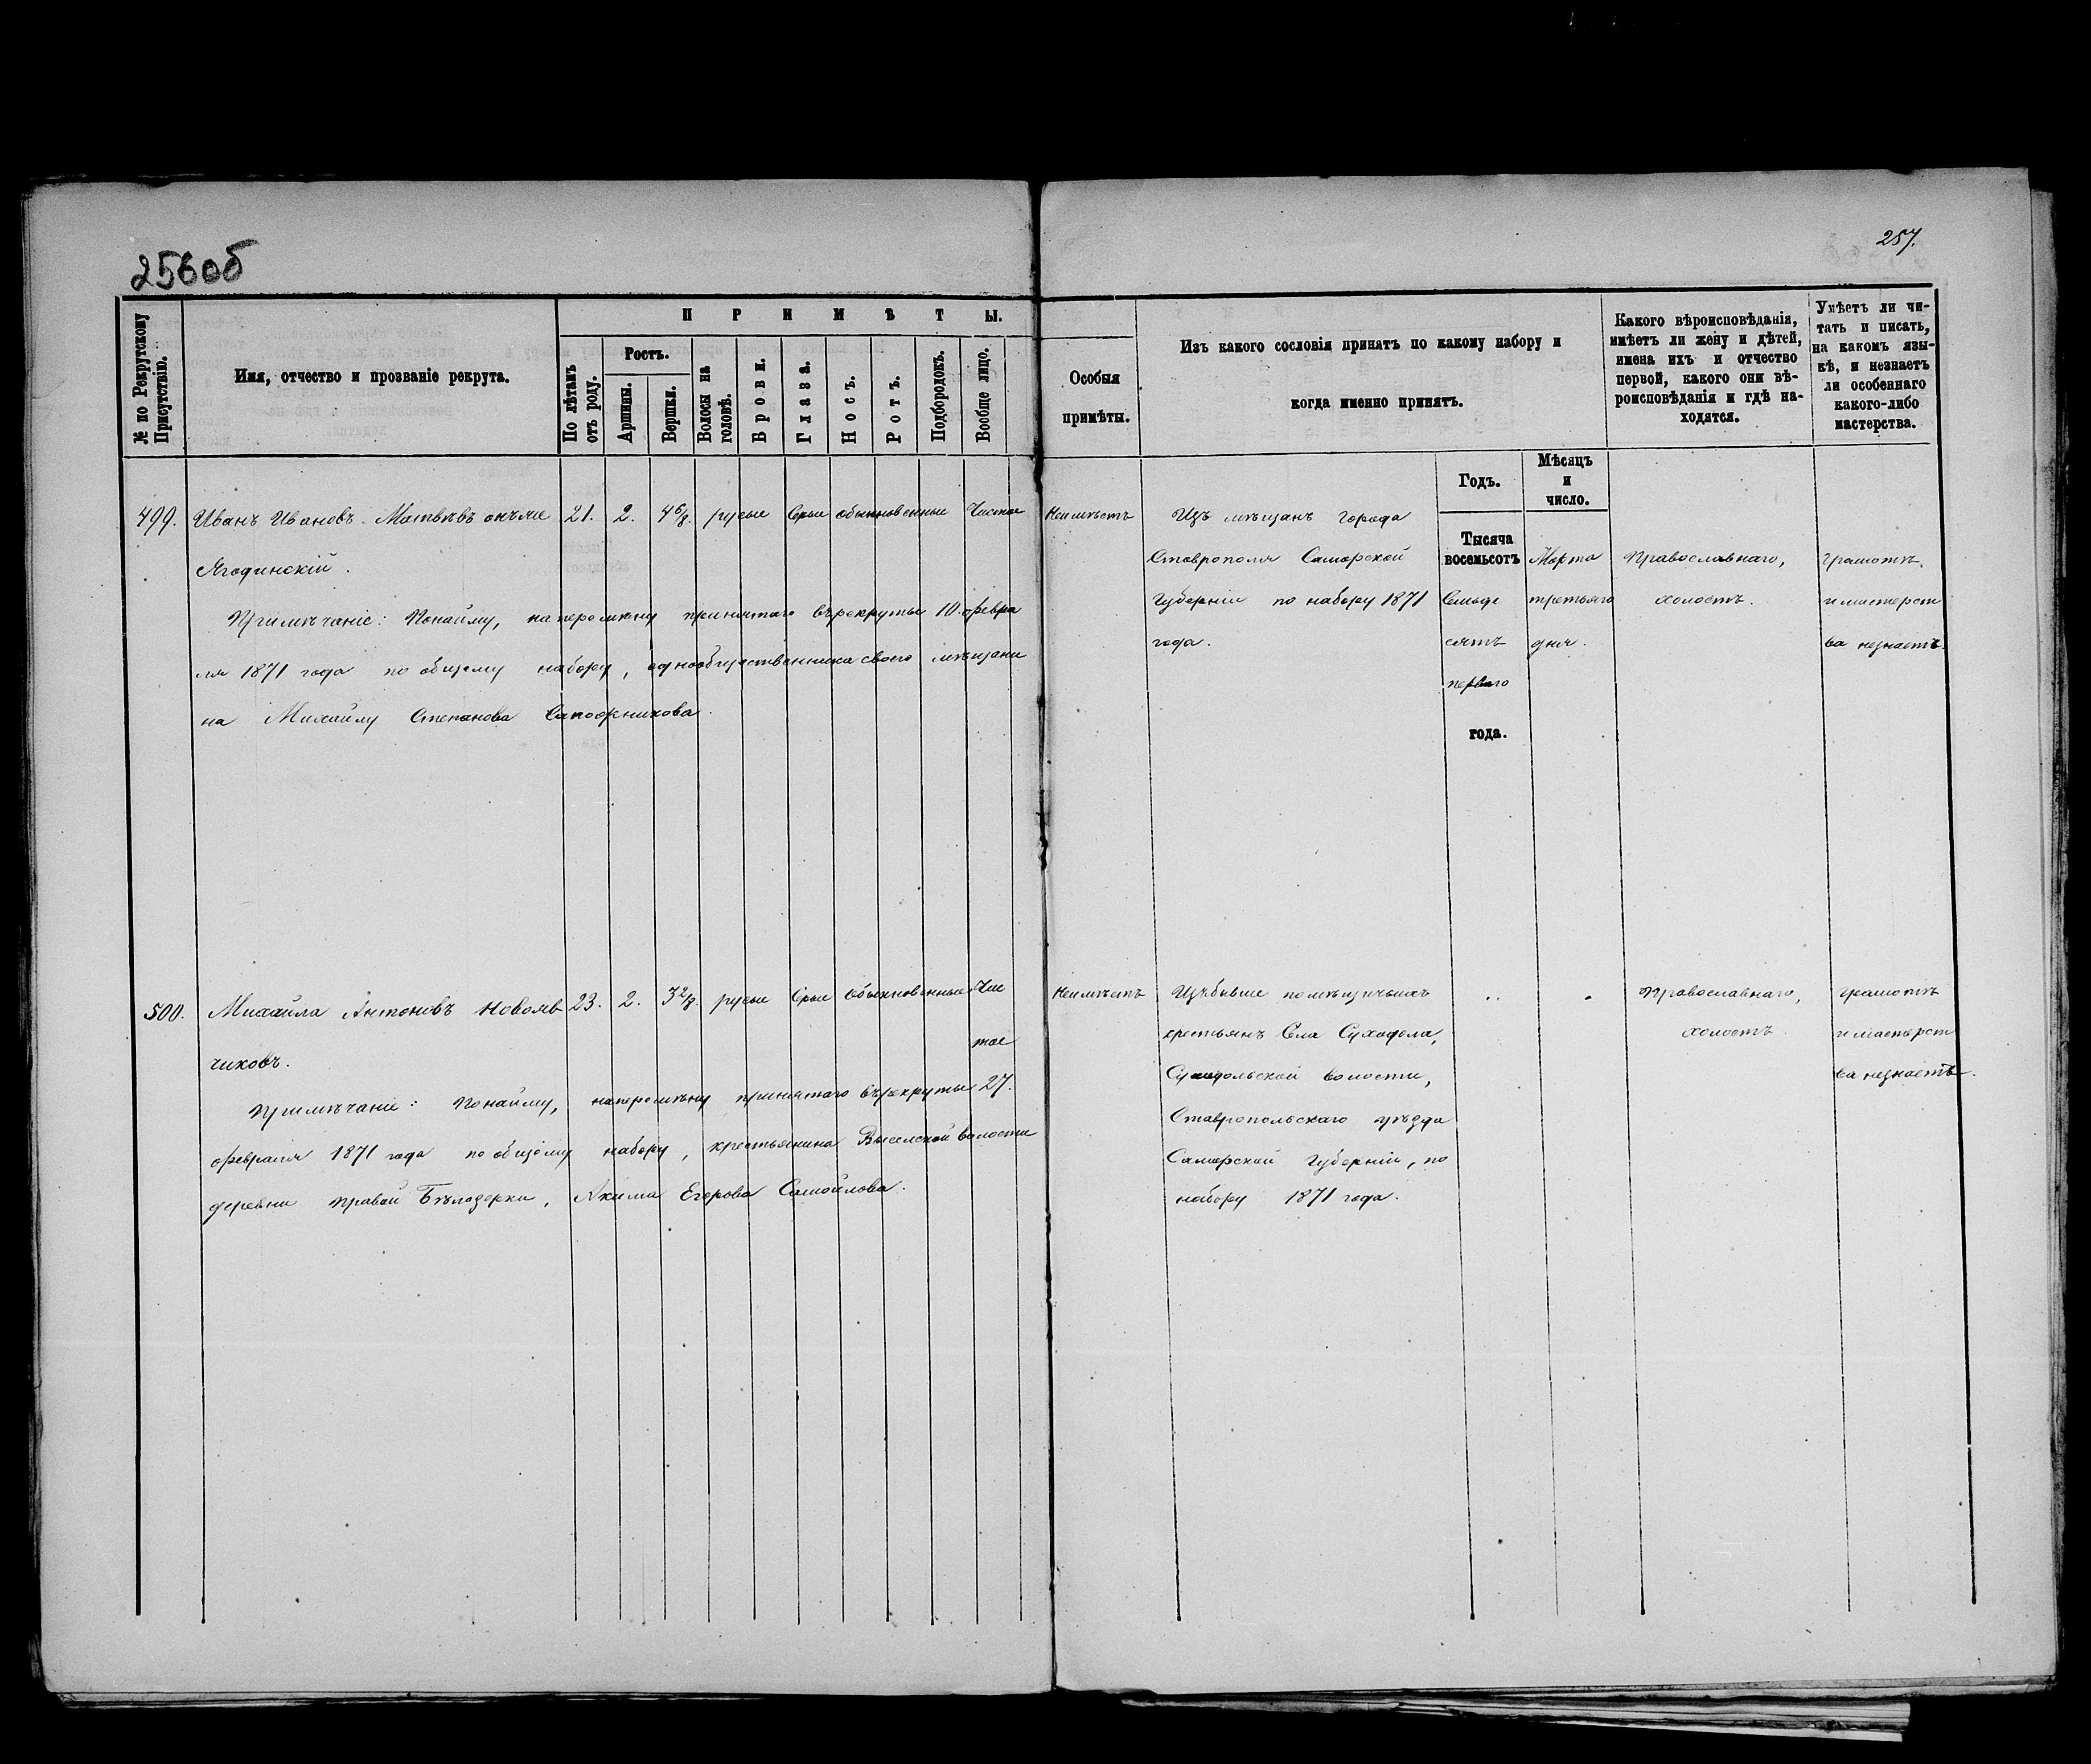 256об
257.
№ по Рекрутскому Присутствію.
Имя, отчество и прозваніе рекрута.
ПРИМѢТЫ.
По лѣтамъ отъ роду.
Ростъ.
Аршины.
Вершки.
Волосы на головѣ.
Брови.
Глаза.
Носъ.
Ротъ.
Подбородокъ.
Вообще лицо.
Особыя
примѣты.
Изъ какого сословія принятъ по какому набору и
когда именно принятъ.
Какого вѣроисповѣданія,
имѣетъ ли жену и дѣтей,
имена ихъ и отчество
первой, какого они вѣ-
роисповѣданія и гдѣ на-
ходятся.
Умѣетъ ли чи-
тать и писать,
на какомъ язы-
кѣ, и незнаетъ
ли особеннаго
какого-либо
мастерства.
Годъ.
Мѣсяцъ
и
число.
499. Иванъ Ивановъ Матвѣевъ онъ же 21. 2. 4 6/8. русые Серые обыкновенные Чистое
Ягодинскій.
Примѣчаніе: Понайму, наперемѣну принятаго въ рекруты 10 февра
ля 1871 года по общему набору, однообщественника своего мѣщани
на Михайлу Степанова Сапожникова.
Неимѣетъ
Изъ мѣщанъ города
Ставрополя Самарской
Губерніи по набору 1871
года.
Тысяча
восемьсотъ
Семьде
сятъ
перваго
года.
Марта
третьяго
дня.
Православнаго,
холостъ.
Грамотѣ
и мастерст
ва незнаетъ.
500. Михайла Антоновъ Новояв 23. 2. 3 2/8. русые Серые Обыкновенные Чис
чиковъ.
тое
Примѣчаніе: Понайму, наперемѣну принятаго въ рекруты 27.
февраля 1871 года по общему набору, крестьянина Выселской волости
деревни Правой Бѣлозерки, Акима Егорова Самойлова.
Неимѣетъ
Изъ бывше помѣщичьихъ
крестьянъ Села Суходола,
Суходольской волости,
Ставропольскаго уѣзда
Самарской Губерніи, по
набору 1871 года.
Православнаго,
холостъ
Грамотѣ
и мастерст
ва незнаетъ.